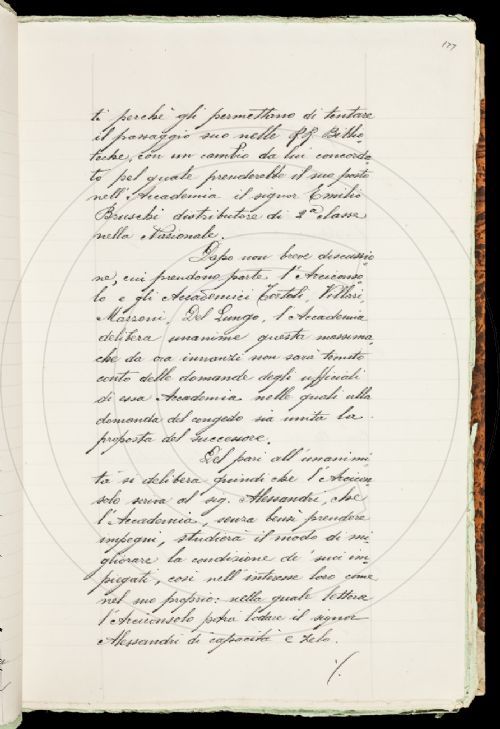 177
ti perchè gli permettano di tentare
il passaggio suo nelle RR. Biblio-
teche, con un cambio da lui concorda-
to pel quale prenderebbe il suo posto
nell'Accademia il signor Emilio
Bruschi distributore di 2ª classe
nella Nazionale.
Dopo non breve discussio-
ne, cui prendono parte l'Arciconso-
lo e gli Accademici Tortoli, Villari,
Marzoni, Del Lungo, l'Accademia
delibera unanime questa massima,
che da ora innanzi non sarà tenuto
conto delle domande degli ufficiali
di essa Accademia nelle quali alla
domanda del congedo sia unita la
proposta del successore.
Del pari all'unanimi-
tà si delibera quindi che l'Arcicon-
solo scriva al sig. Alessandri, che
l'Accademia, senza bensì prendere
impegni, studierà il modo di mi-
gliorare la condizione de' suoi im-
piegati, così nell'interesse loro come
nel suo proprio: nella quale lettera
l'Arciconsolo potrà lodare il signor
Alessandri di capacità e zelo.
./.